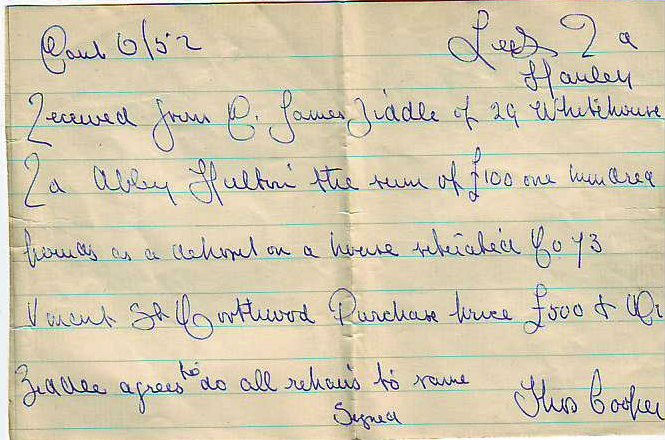 6/52 Leek Rd
Hanley
Received from Mr. James Riddle of 29 Whitehouse
Rd Abbey Hulton the sum of £100 one hundred
pounds as a deposit on a house situated No 73
Vincent St Northwood Purchase price £500 & Mr
Riddle agrees to do all repairs to same
Signed Thos Cooper